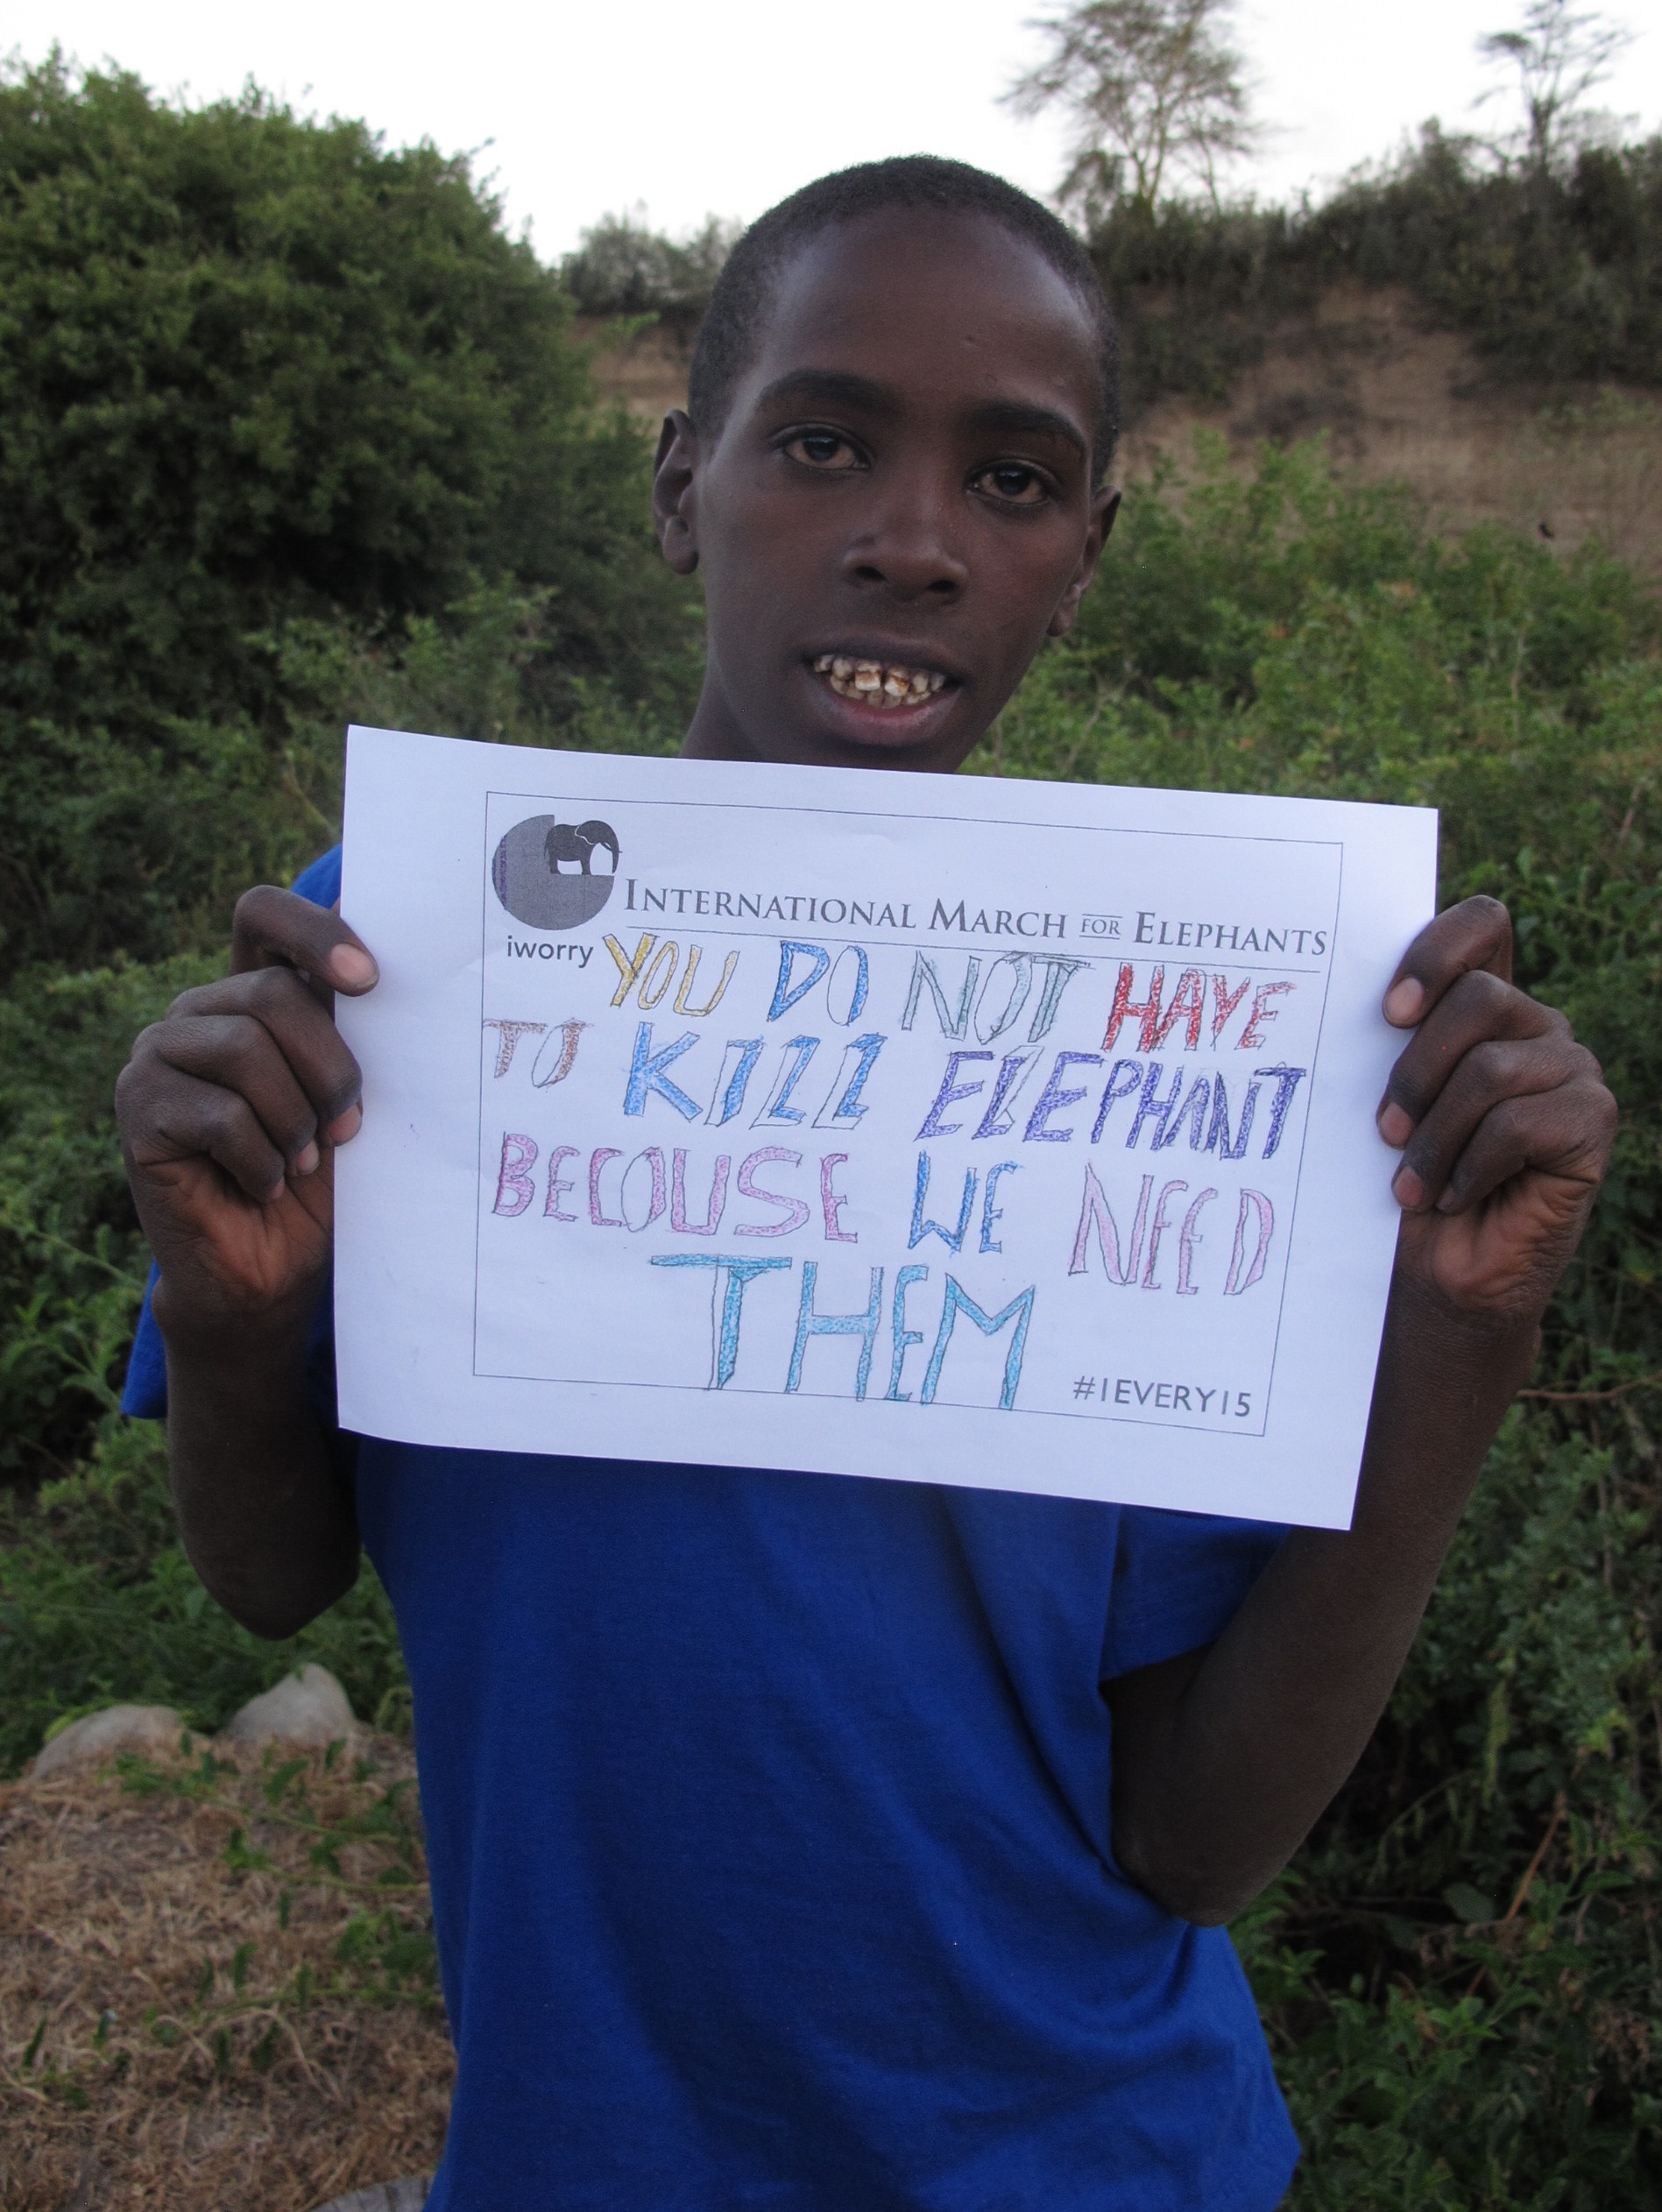 INTERNATIONAL MARCH FOR ELEPHANTS
iworry
YOU DO NOT HAVE
TO KILL ELEPHANT
BECOUSE WE NEED
THEM
#IEVERY15